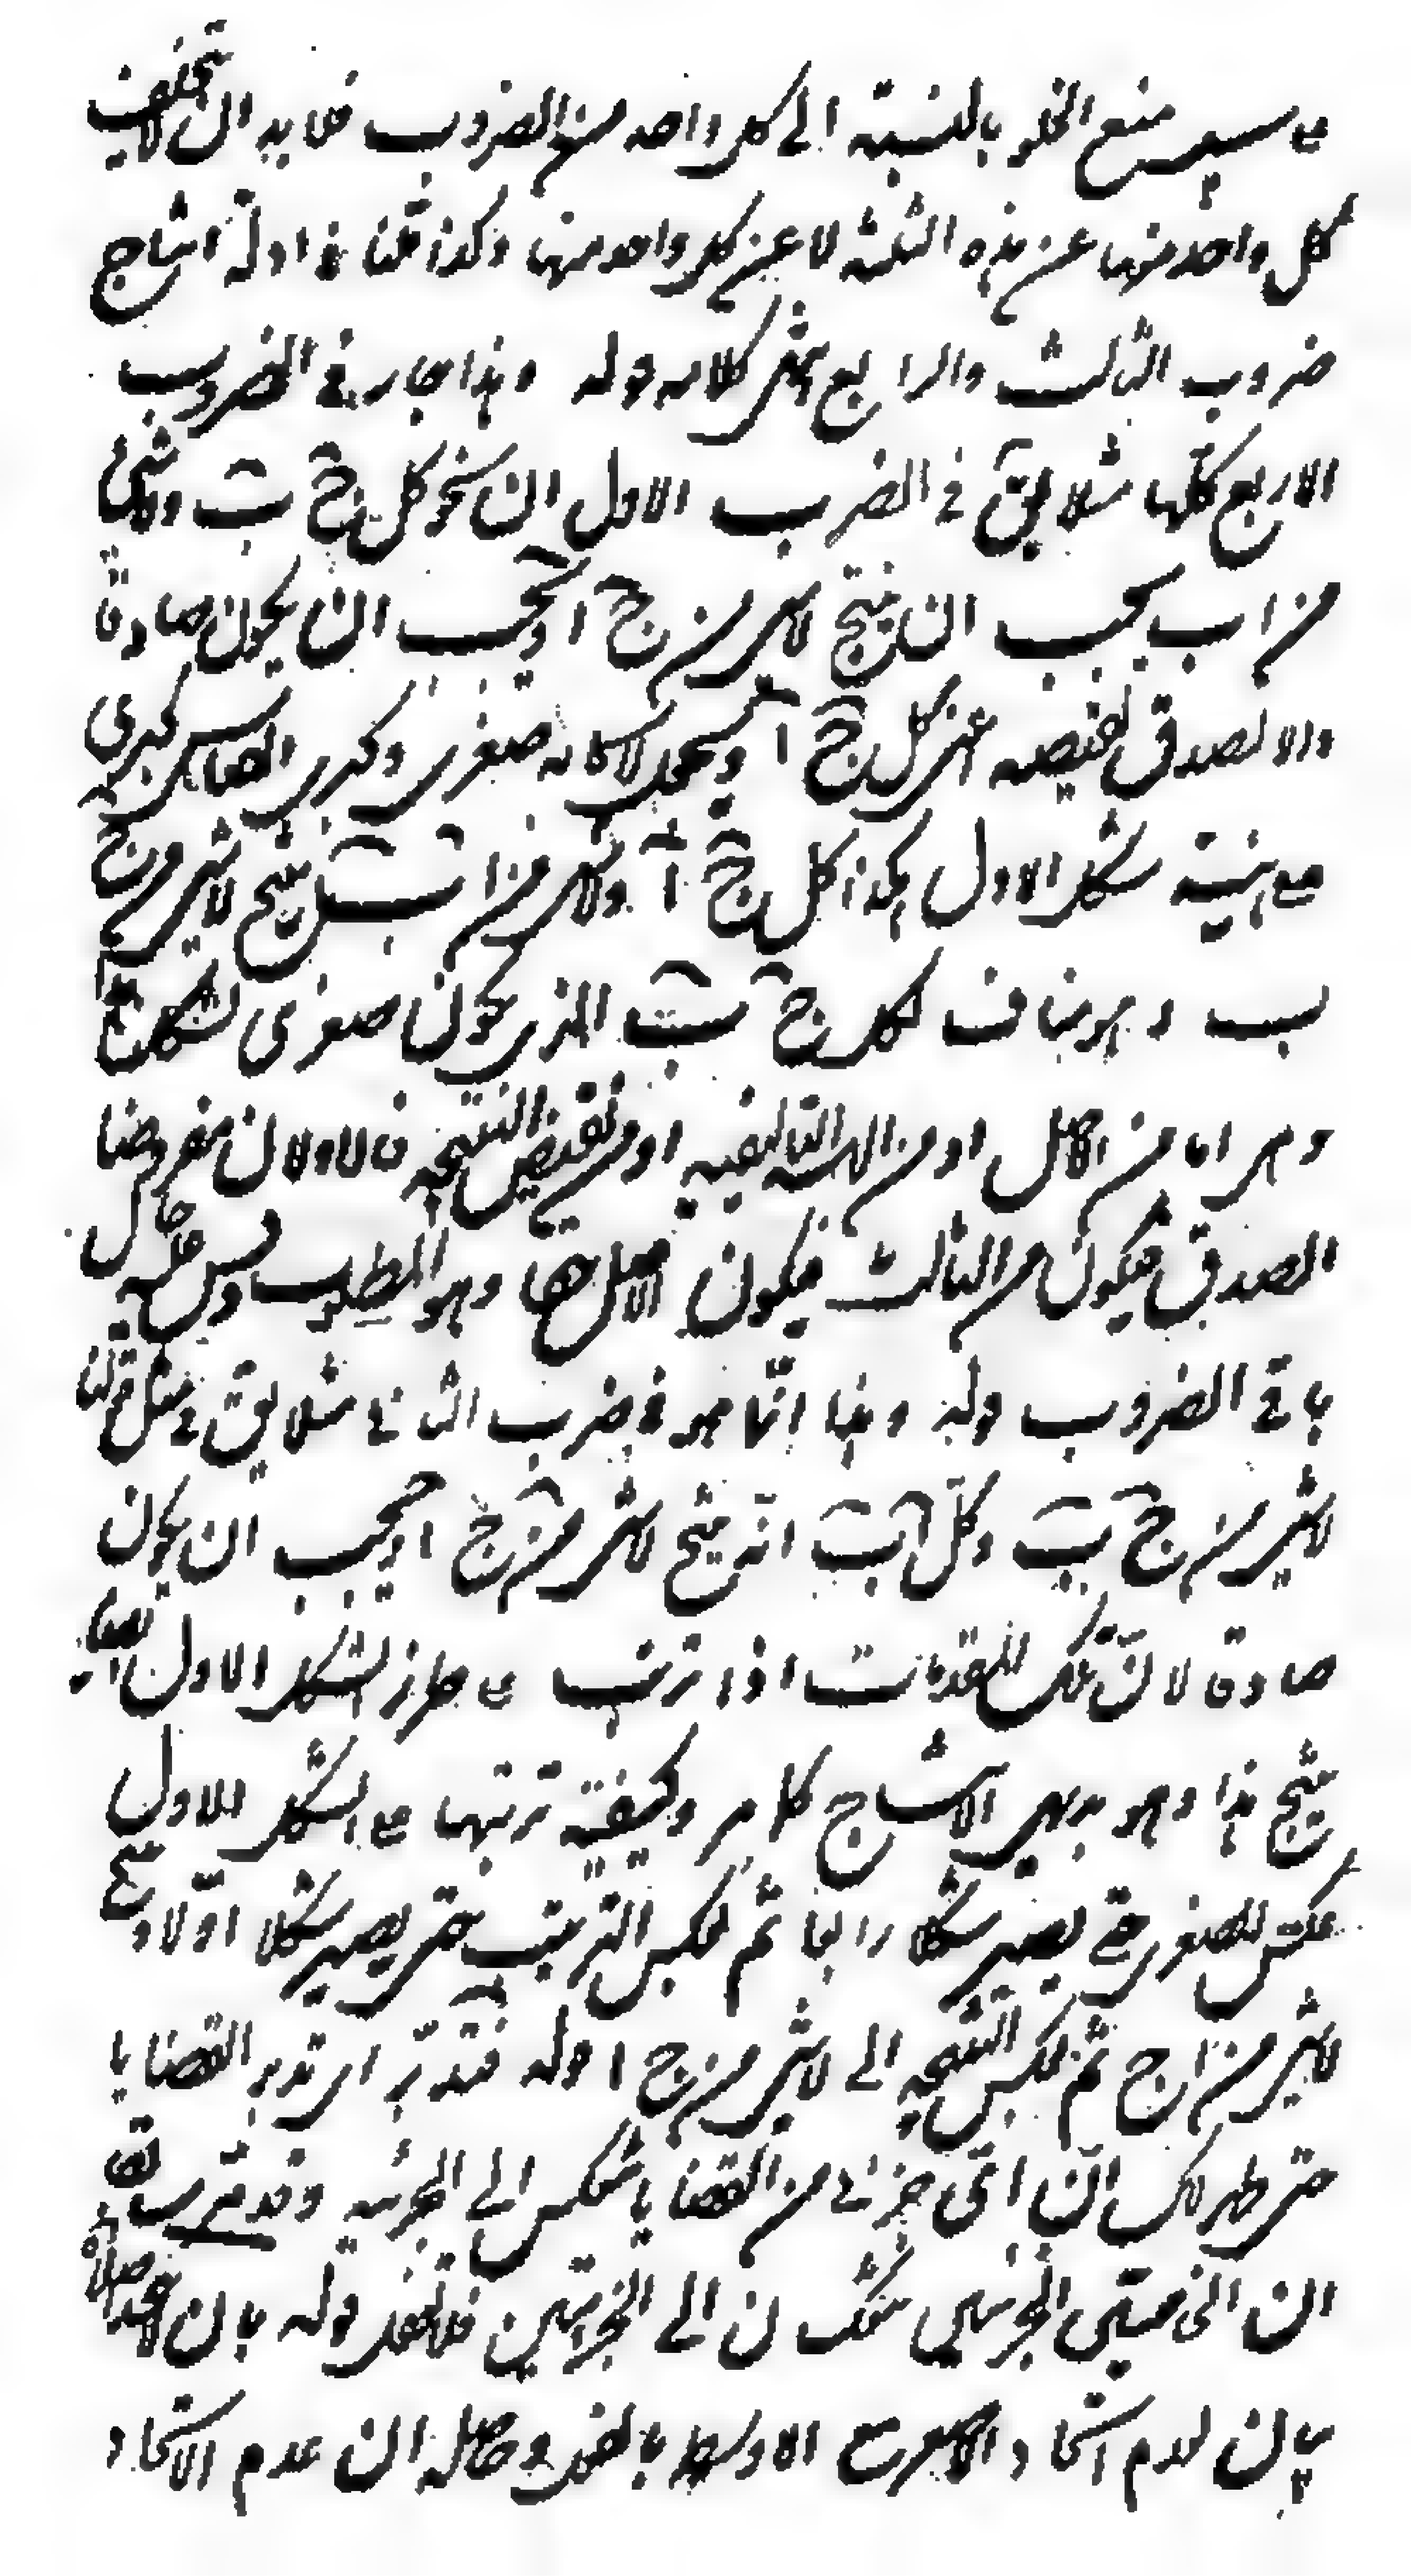 ع سبيل منع الخلو بالنسبة الى كل واحد من الضروب فلا بد ان لا يتخلف
كل واحد منها عن هذه الثلثة لا عن كل واحد منها وكذا قلنا في ادلة انتاج
ضروب الثالث والرابع بمثل كلامه قوله وهذا جار في الضروب
الاربع كلها مثلا يق في الضرب الاول ان نحو كل ج ب ولا شئ
من ا ب يجب ان ينتج لا شئ من ج ا ويجب ان يكون صادقا
والا لصدق نقيضه اعنى كل ج ا ويجعل صغرى وكبرى القياس كبرى
ع هيئة شكل الاول هكذا كل ج ا ولا شئ من ا ب ينتج لا شئ من ج
ب وهو مناف لكل ج ب الذي يكون صغرى لشكلنا
وهو اما من الاصل او من الهيئة التاليفية او من نقيض النتيجة فالاولان مفروضا
الصدق فيكون من الثالث فيكون الاصل حقا وهو المطلوب وقس عليه حال
باقي الضروب قوله وهذا انما هو في ضرب الثاني مثلا يق في مثل قولنا
لا شئ من ج ب وكل ا ب انه ينتج لا شئ من ج ا ويجب ان يكون
صادقا لان تلك المقدمات اذا ترتب ع طراز الشكل الاول
ينتج هذا وهو بديهي الانتاج كما مر وكيفية ترتبها ع الشكل الاول
عكس الصغرى حتى يصير شكلا رابعا ثم عكس الترتيب حتى يصير شكلا اولا وينتج
لا شئ من ا ج ثم عكس النتيجة الى لا شئ من ج ا قوله فتدبر اى تدبر القضايا
حتى ظهر لك ان اى جزئى من القضايا ينعكس الى الجزئية وقد مر سابقا
ان الخاصيتين الجزئيتين تنعكسان الى الجزئيتين فلا تغفل قوله بان
بيان لعدم اتحاد الاصغر مع الاوسط بالفعل وحاصله ان عدم الاتحاد